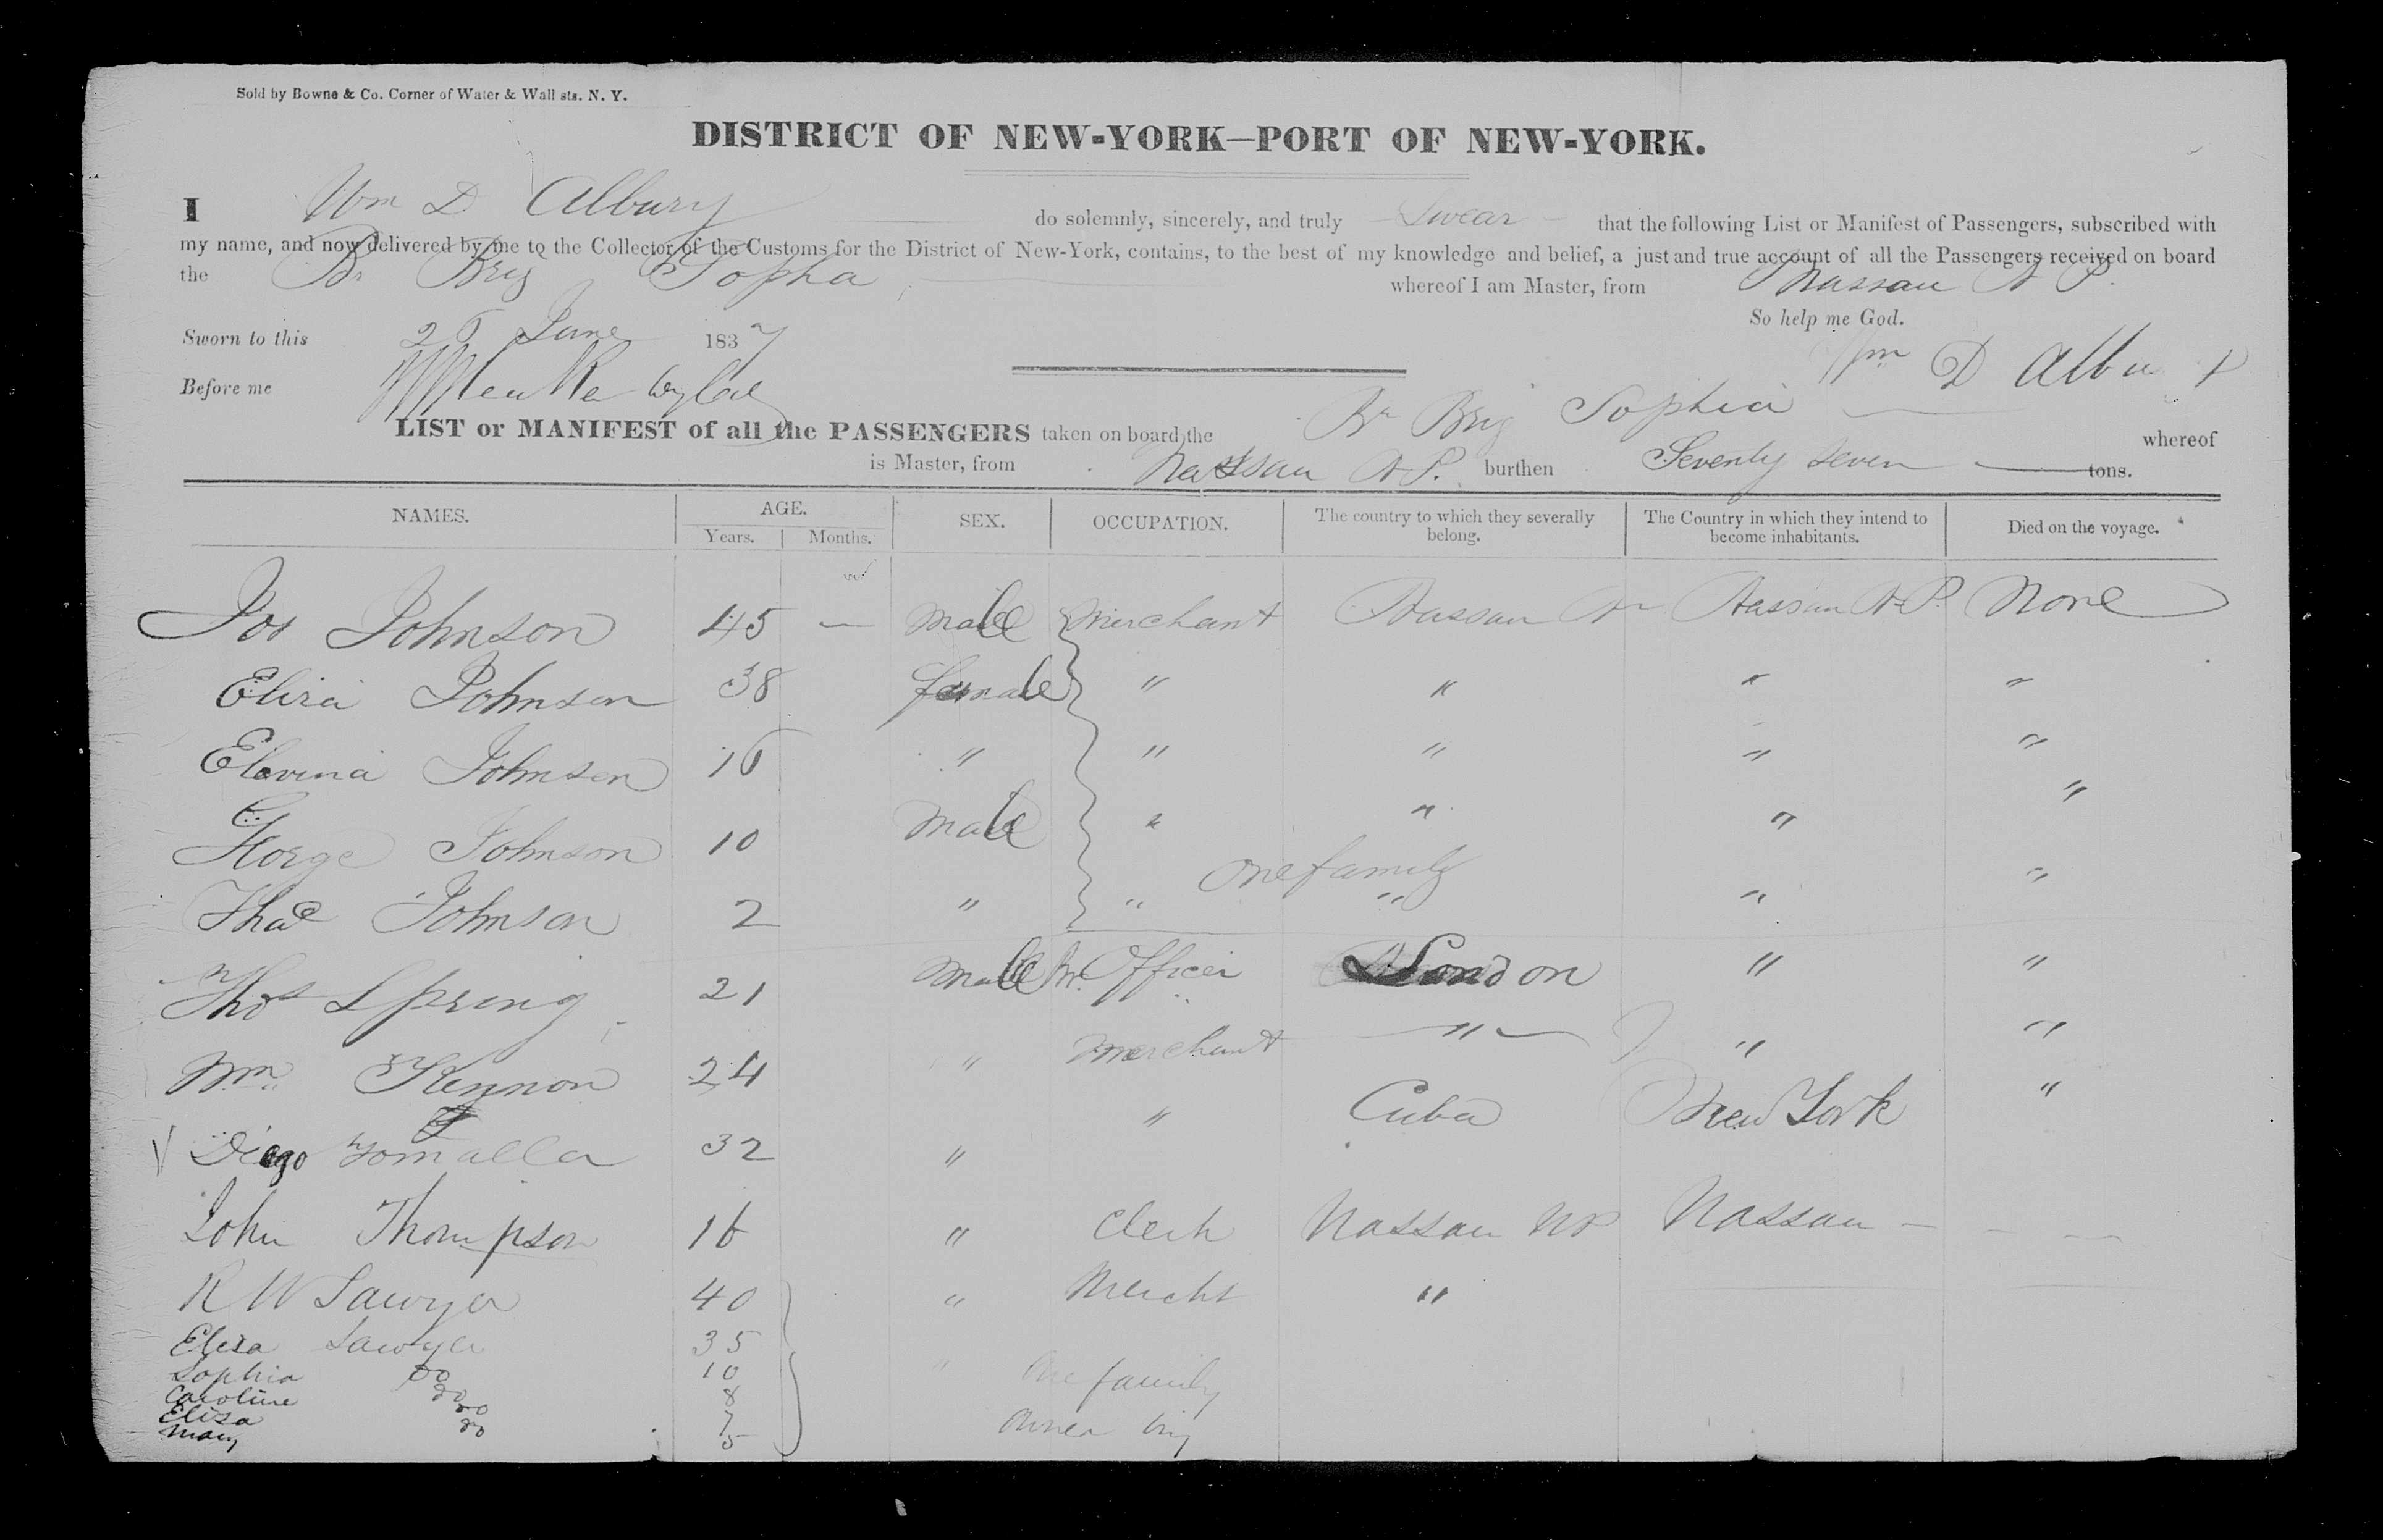 Sold by Bowne & Co. Corner of Water & Wall sts. N. Y.
DISTRICT OF NEW-YORK—PORT OF NEW-YORK.
I Wm D Albury do solemnly, sincerely, and truly Swear that the following List or Manifest of Passengers, subscribed with
my name, and now delivered by me to the Collector of the Customs for the District of New-York, contains, to the best of my knowledge and belief, a just and true account of all the Passengers received on board
the Br Brig Sopha whereof I am Master, from Nassau N P.
So help me God.
Sworn to this June 1837
Wm D Albury
Before me
LIST or MANIFEST of all the PASSENGERS taken on board the Br Brig Sophia whereof
is Master, from Nassau N P. burthen Seventy Seven tons.
NAMES. AGE. SEX. OCCUPATION. The country to which they severally belong. The Country in which they intend to become inhabitants. Died on the voyage.
Years. Months.
Jos Johnson 45 — Male Merchant Nassau N Nassau N P. None
Eliza Johnson 38 female " " " "
Johnson 16 " " " " "
George Johnson 10 Male " " " "
one family
Johnson 2 " " " " "
Thos Spring 21 Male Officer London " "
Wm Kennon 24 " Merchant " " "
Diego 32 " " Cuba New York "
John Thompson 16 " Clerk Nassau NP Nassau — — —
R W Sawyer 40 " Mercht "
Elisa Sawyer 35
Sophia Do 10 " One family
Caroline Do 8
Elisa Do 7 Owner brig
Mary Do 5